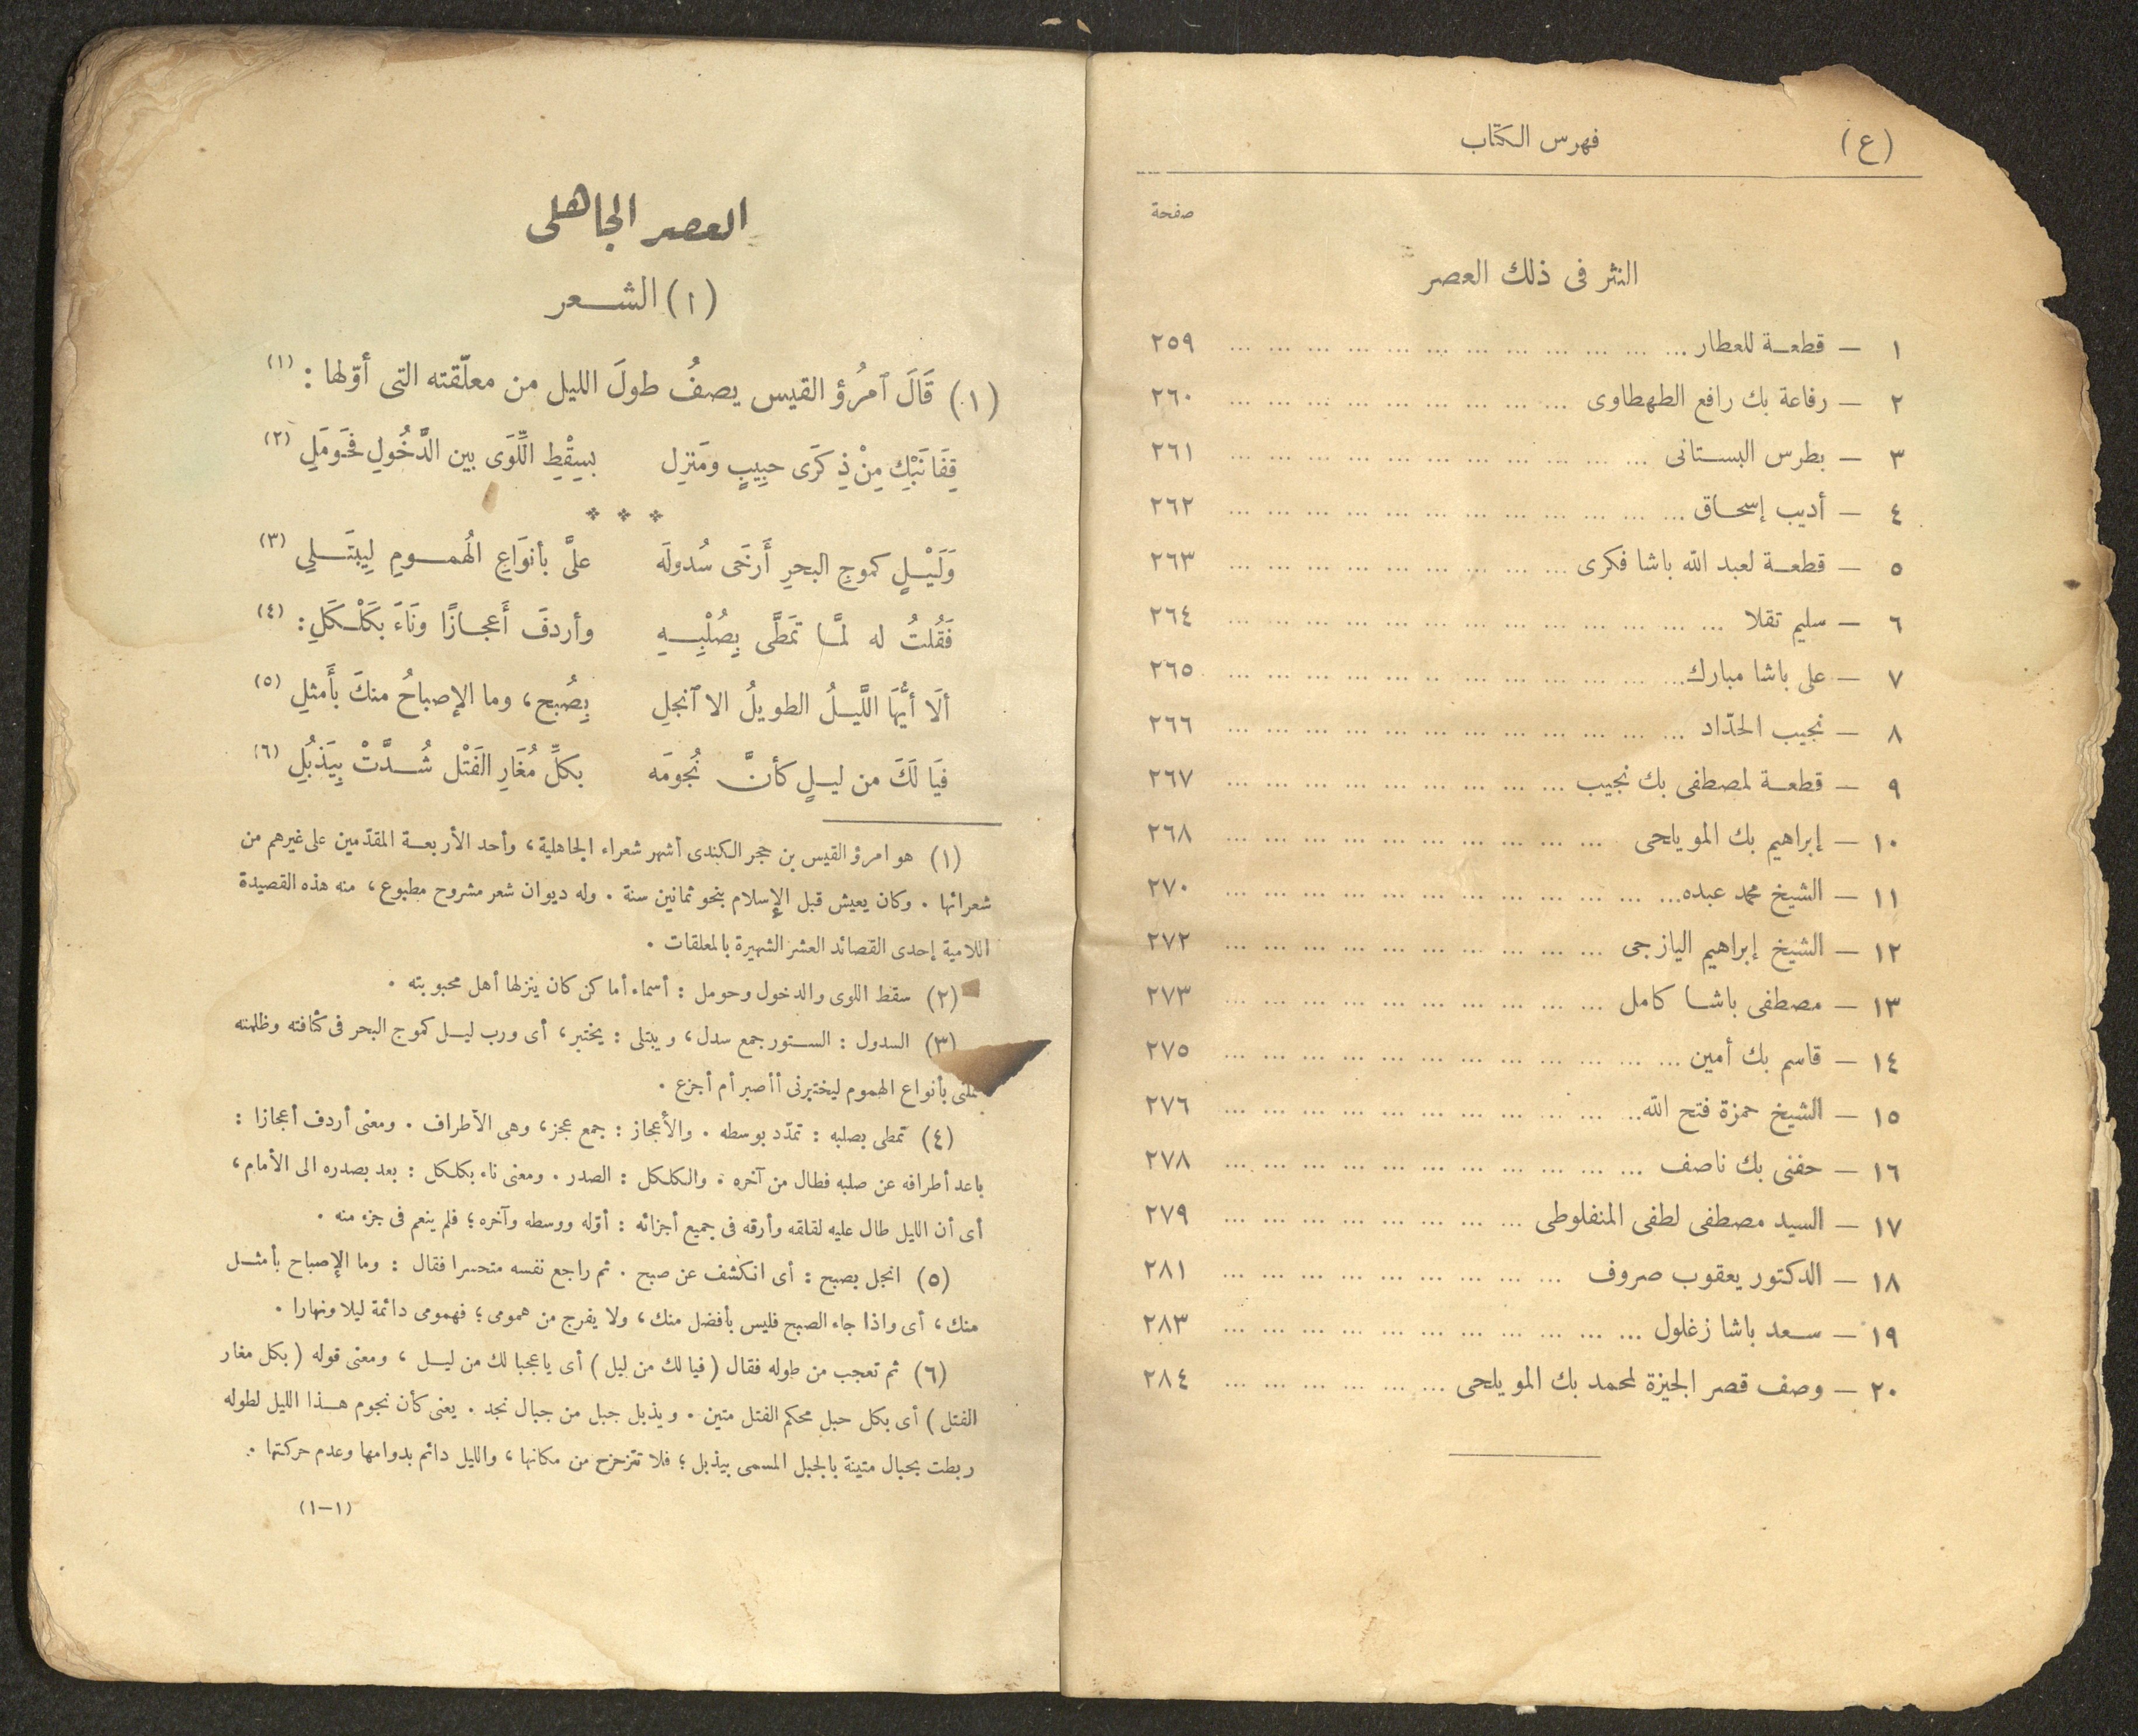 (ع)
فهرس الكتاب
صفحة
النثر فى ذلك العصر
١ — قطعة للعطار ... ... ... ... ... ... ... ... ... ... ... ... ٢٥٩
٢ — رفاعة بك رافع الطهطاوى ... ... ... ... ... ... ... ... ... ٢٦٠
٣ — بطرس البستانى ... ... ... ... ... ... ... ... ... ... ... ٢٦١
٤ — أديب إسحاق ... ... ... ... ... ... ... ... ... ... ... ... ٢٦٢
٥ — قطعة لعبد الله باشا فكرى ... ... ... ... ... ... ... ... ... ٢٦٣
٦ — سليم تقلا ... ... ... ... ... ... ... ... ... ... ... ... ... ٢٦٤
٧ — على باشا مبارك ... ... ... ... ... ... ... ... ... ... ... ... ٢٦٥
٨ — نجيب الحدّاد ... ... ... ... ... ... ... ... ... ... ... ... ٢٦٦
٩ — قطعة لمصطفى بك نجيب ... ... ... ... ... ... ... ... ... ٢٦٧
١٠ — إبراهيم بك المويلحى ... ... ... ... ... ... ... ... ... ... ٢٦٨
١١ — الشيخ محمد عبده ... ... ... ... ... ... ... ... ... ... ... ... ٢٧٠
١٢ — الشيخ إبراهيم اليازجى ... ... ... ... ... ... ... ... ... ... ٢٧٢
١٣ — مصطفى باشا كامل ... ... ... ... ... ... ... ... ... ... ٢٧٣
١٤ — قاسم بك أمين ... ... ... ... ... ... ... ... ... ... ... ... ٢٧٥
١٥ — الشيخ حمزة فتح الله ... ... ... ... ... ... ... ... ... ... ... ٢٧٦
١٦ — حفنى بك ناصف ... ... ... ... ... ... ... ... ... ... ... ٢٧٨
١٧ — السيد مصطفى لطفى المنفلوطى ... ... ... ... ... ... ... ... ٢٧٩
١٨ — الدكتور يعقوب صروف ... ... ... ... ... ... ... ... ... ٢٨١
١٩ — سعد باشا زغلول ... ... ... ... ... ... ... ... ... ... ... ٢٨٣
٢٠ — وصف قصر الجيزة لمحمد بك المويلحى ... ... ... ... ... ... ٢٨٤
العصر الجاهلى
(١) الشعر
(١) قَالَ ٱمرُؤ القيس يصفُ طولَ الليل من معلّقته التى أوّلها : (١)
قِفَا نَبْكِ مِنْ ذِكرَى حبِيبٍ ومَنزِل بسِقْطِ اللِّوَى بين الدَّخُولِ فحَومَلِ (٢)
* * *
وَلَيْلٍ كموجِ البحرِ أَرخَى سُدولَه علىَّ بأنوَاعِ الهُمومِ لِيبتَلِي (٣)
فَقُلتُ له لمَّا تمَطَّى بِصُلْبِهِ وأردفَ أَعجازًا ونَاءَ بكَلْكَلِ : (٤)
ألَا أيُّهَا اللَّيلُ الطويلُ الا ٱنجلِ بِصُبح، وما الإصباحُ منكَ بأَمثلِ (٥)
فيَا لَكَ من ليلٍ كأنَّ نُجومَه بكلِّ مُغَارِ الفَتْل شُدَّتْ بِيَذبُلِ (٦)
(١) هو امرؤ القيس بن حجر الكندى أشهر شعراء الجاهلية، وأحد الأربعة المقدّمين على غيرهم من
شعرائها . وكان يعيش قبل الإسلام بنحو ثمانين سنة . وله ديوان شعر مشروح مطبوع، منه هذه القصيدة
اللامية إحدى القصائد العشر الشهيرة بالمعلقات .
(٢) سقط اللوى والدخول وحومل : أسماء أماكن كان ينزلها أهل محبوبته .
(٣) السدول : الستور جمع سدل، ويبتلى : يختبر، أى ورب ليل كموج البحر فى كثافته وظلمته
بأنواع الهموم ليختبرنى أأصبر أم أجزع .
(٤) تمطى بصلبه : تمدّد بوسطه . والأعجاز : جمع عجز، وهى الأطراف . ومعنى أردف أعجازا :
باعد أطرافه عن صلبه فطال من آخره . والكلكل : الصدر . ومعنى ناء بكلكل : بعد بصدره الى الأمام،
أى أن الليل طال عليه لقلقه وأرقه فى جميع أجزائه : أوّله ووسطه وآخره؛ فلم ينعم فى جزء منه .
(٥) انجل بصبح : أى انكشف عن صبح . ثم راجع نفسه متحسرا فقال : وما الإصباح بأمثل
منك، أى واذا جاء الصبح فليس بأفضل منك، ولا يفرج من همومى؛ فهمومى دائمة ليلا ونهارا .
(٦) ثم تعجب من طوله فقال (فيا لك من ليل) أى يا عجبا لك من ليل، ومعنى قوله (بكل مغار
الفتل) أى بكل حبل محكم الفتل متين . ويذبل جبل من جبال نجد . يعنى كأن نجوم هذا الليل لطوله
ربطت بحبال متينة بالجبل المسمى بيذبل؛ فلا تتزحزح من مكانها، والليل دائم بدوامها وعدم حركتها .
(١—١)